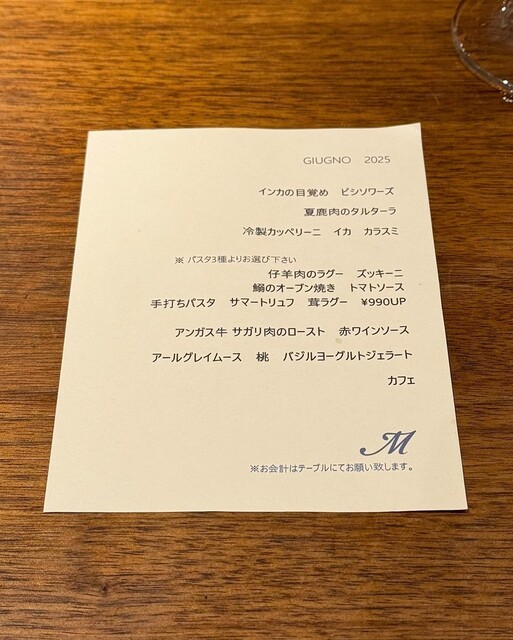 GIUGNO 2025
インカの目覚め ビシソワーズ
夏鹿肉のタルターラ
冷製カッペリーニ イカ カラスミ
※ パスタ3種よりお選び下さい
仔羊肉のラグー ズッキーニ
鰯のオーブン焼き トマトソース
手打ちパスタ サマートリュフ 茸ラグー ¥990UP
アンガス牛 サガリ肉のロースト 赤ワインソース
アールグレイムース 桃 バジルヨーグルトジェラート
カフェ
M
※お会計はテーブルにてお願い致します。